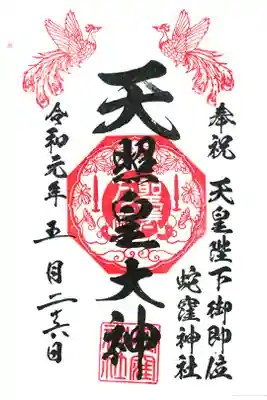 奉祝 天皇陛下御即位
蛇窪神社
天照皇大神
令和元年五月二十六日